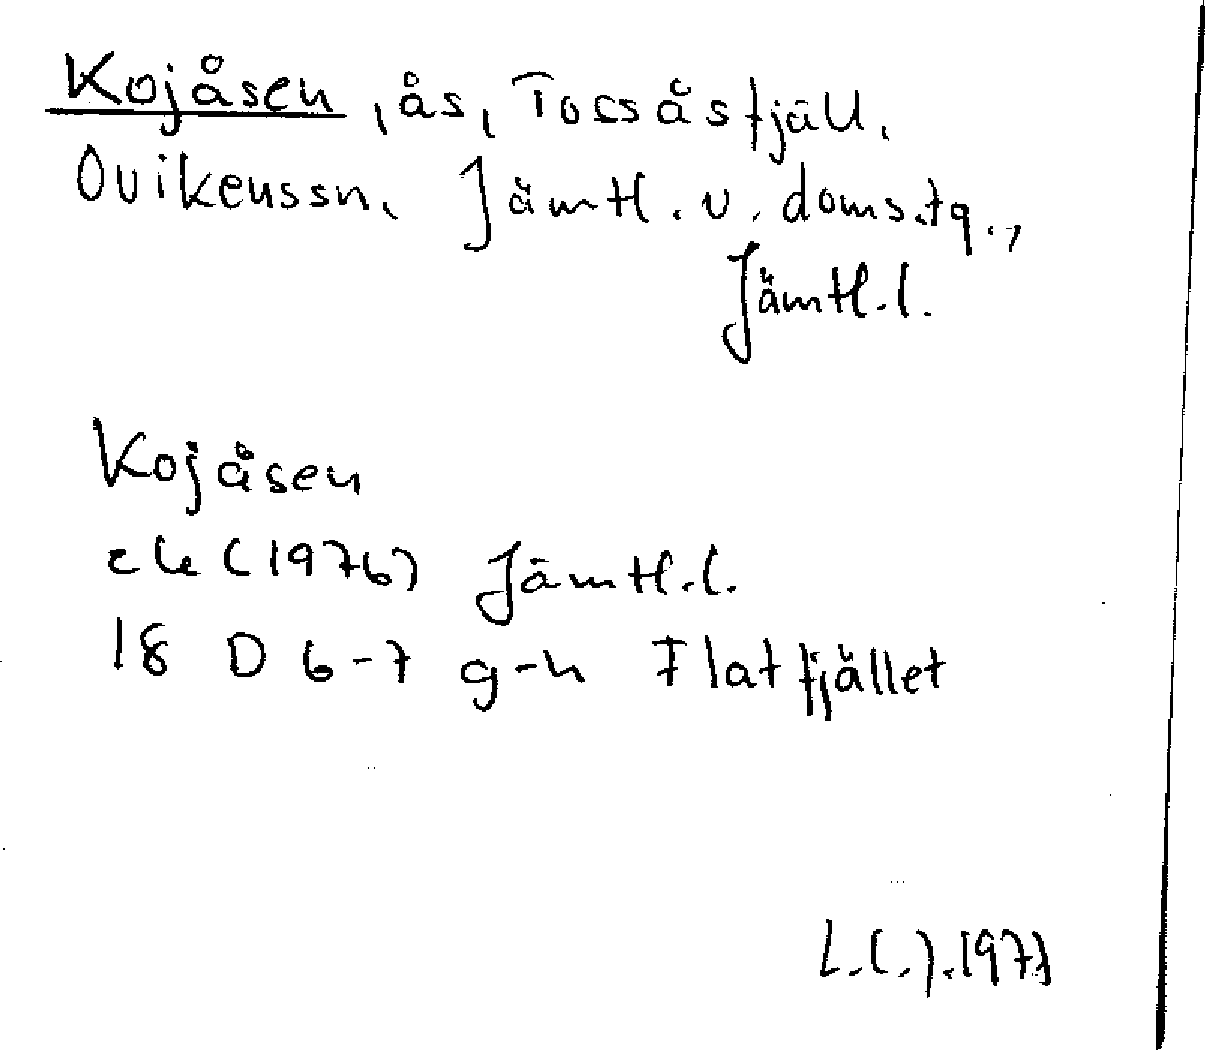 Kojåsen, ås, Tossåsfjäll,
Ovikenssn, Jämtl. v. doms.tg.,
Jämtl.l.
Kojåsen
ek (1976) Jämtl.l.
18 D 6-7 g-h Flatfjället
1977